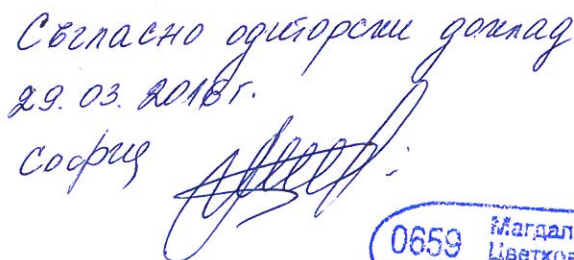 Съгласно одиторски доклад
29.03.2016г.
София
0659 Магдал
Цветков